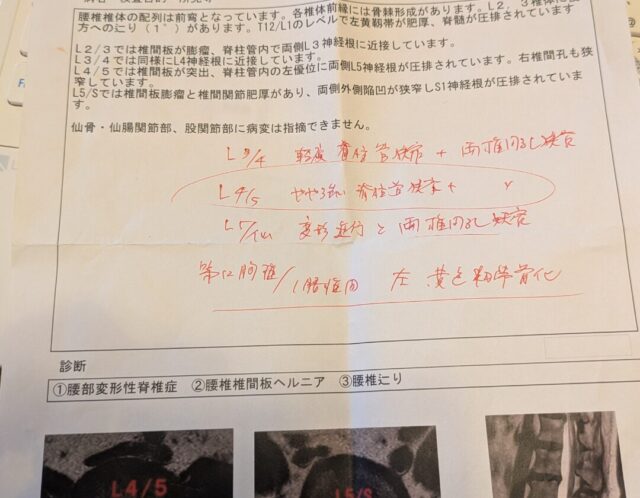 腰椎椎体の配列は前弯となっています。各椎体前縁には骨棘形成があります。L2、3椎体に
方への辷り(1°)があります。T12/L1のレベルで左黄靭帯が肥厚、脊髄が圧排されています。
L2/3では椎間板が膨瘤、脊柱管内で両側L3神経根に近接しています。
L3/4では同様にL4神経根に近接しています。
L4/5では椎間板が突出、脊柱管内の左優位に両側L5神経根が圧排されています。右椎間孔も狭
窄しています。
L5/Sでは椎間板膨瘤と椎間関節肥厚があり、両側外側陥凹が狭窄しS1神経根が圧排されていま
す。
仙骨・仙腸関節部、股関節部に病変は指摘できません。
L3/4 軽度脊柱管狭窄+両椎間孔狭窄
L4/5 やや強い脊柱管狭窄+ 〃
変形進行と両椎間孔狭窄
第12胸椎/1腰椎間 左 黄色靭帯骨化
診断
①腰部変形性脊椎症 ②腰椎椎間板ヘルニア ③腰椎辷り
L4/5
L5/S